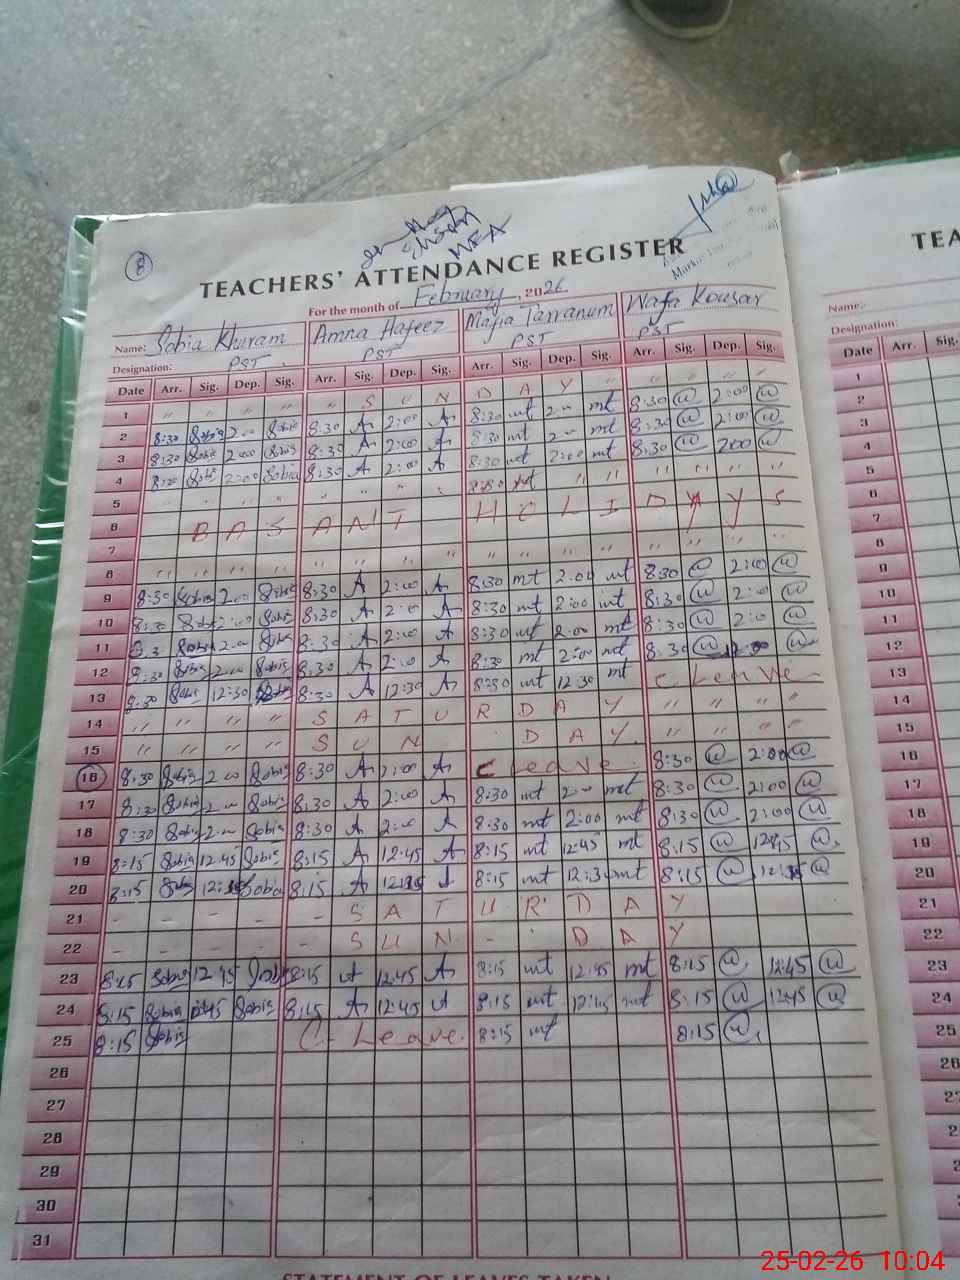 8
MEA
TEACHERS' ATTENDANCE REGISTER
For the month of February, 2026
Name: Sobia Khuram Amna Hafeez Mafia Tarranum Wafa Kousar
Designation: PST PST PST PST
Date Arr. Sig. Dep. Sig. Arr. Sig. Dep. Sig. Arr. Sig. Dep. Sig. Arr. Sig. Dep. Sig.
1 " " " " " S U N D A Y " " " " "
2 8:30 Sobia 2:00 Sobia 8:30 A 2:00 A 8:30 mt 2:00 mt 8:30 @ 2:00 @
3 8:30 Sobia 2:00 Sobia 8:30 A 2:00 A 8:30 mt 2:00 mt 8:30 @ 2:00 @
4 8:30 Sobia 2:00 Sobia 8:30 A 2:00 A 8:30 mt 2:00 mt 8:30 @ 2:00 @
5 " " " " " " " " " " " " " "
6 B A S A N T H O L I D A Y S
7
8 " " " " " " " " " " " " "
9 8:30 Sobia 2:00 Sobia 8:30 A 2:00 A 8:30 mt 2:00 mt 8:30 @ 2:00 @
10 8:30 Sobia 2:00 Sobia 8:30 A 2:00 A 8:30 mt 2:00 mt 8:30 @ 2:00 @
11 Sobia 2:00 Sobia 8:30 A 2:00 A 8:30 mt 2:00 mt 8:30 @ 2:00 @
12 8:30 Sobia 2:00 Sobia 8:30 A 2:00 A 8:30 mt 2:00 mt 8:30 @ @
13 8:30 Sobia 12:30 Sobia 8:30 A 12:30 A 8:30 mt 12:30 mt C Leave
14 " " " " S A T U R D A Y " " " "
15 " " " " S U N D A Y " " " "
16 8:30 Sobia 2:00 Sobia 8:30 A 2:00 A C Leave 8:30 @ 2:00 @
17 8:30 Sobia 2:00 Sobia 8:30 A 2:00 A 8:30 mt 2:00 mt 8:30 @ 2:00 @
18 8:30 Sobia 2:00 Sobia 8:30 A 2:00 A 8:30 mt 2:00 mt 8:30 @ 2:00 @
19 8:15 Sobia 12:45 Sobia 8:15 A 12:45 A 8:15 mt 12:45 mt 8:15 @ 12:45 @
20 8:15 Sobia Sobia 8:15 A A 8:15 mt 12:30 mt 8:15 @ @
21 - - - - - S A T U R D A Y
22 - - - - - S U N - D A Y
23 8:15 Sobia 12:45 Sobia 8:15 A 12:45 A 8:15 mt 12:45 mt 8:15 @ 12:45 @
24 8:15 Sobia 12:45 Sobia 8:15 A 12:45 A 8:15 mt 12:45 mt 8:15 @ 12:45 @
25 8:15 Sobia C. Leave. 8:15 mt 8:15 @
26
27
28
29
30
31
STATEMENT OF LEAVES TAKEN
TEA
Name:
Designation:
Date Arr. Sig.
1
2
3
4
5
6
7
8
9
10
11
12
13
14
15
16
17
18
19
20
21
22
23
24
25
26
25-02-26 10:04